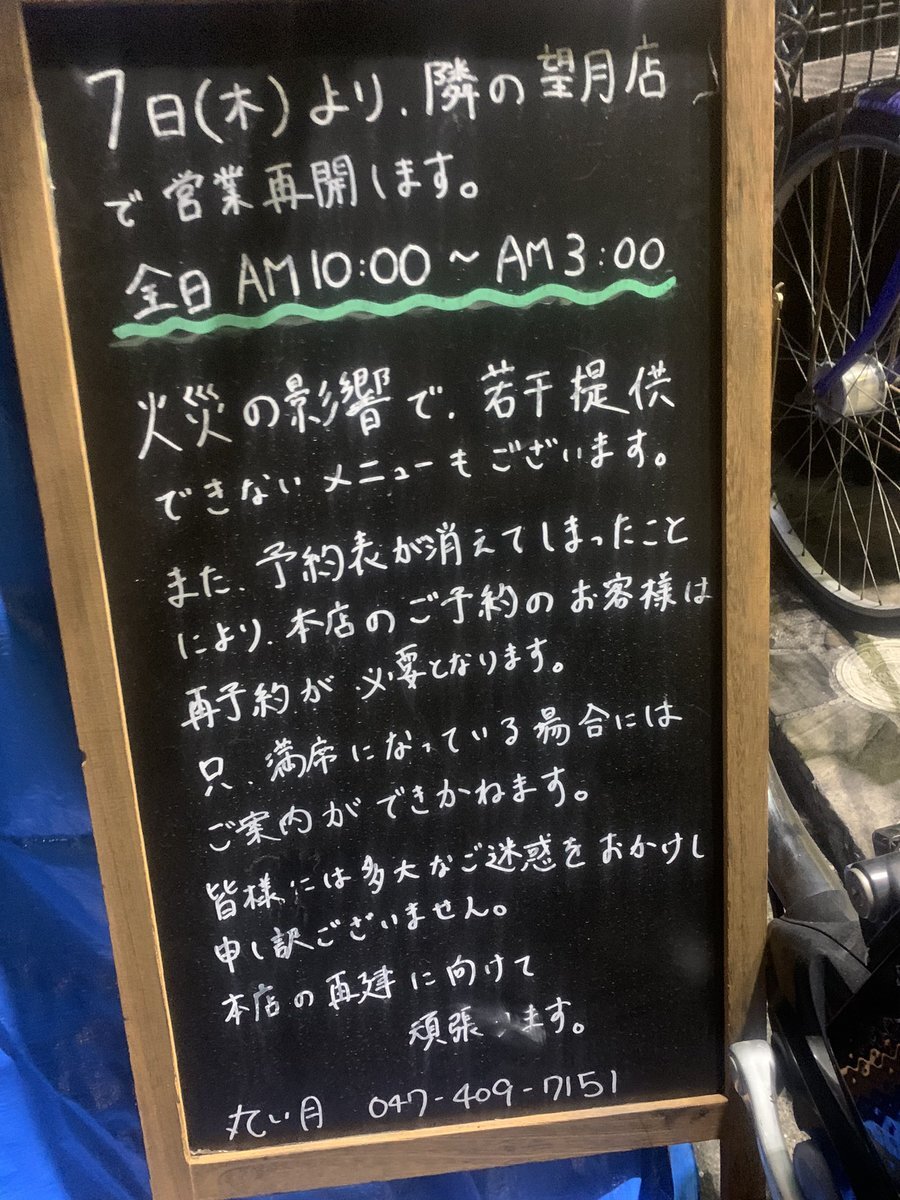 7日(木)より、隣の望月店
で営業再開します。
全日 AM10:00～AM3:00
火災の影響で、若干提供
できないメニューもございます。
また、予約表が消えてしまったこと
により、本店のご予約のお客様は
再予約が必要となります。
只、満席になっている場合には
ご案内ができかねます。
皆様には多大なご迷惑をおかけし
申し訳ございません。
本店の再建に向けて
頑張ります。
丸い月 047-409-7151